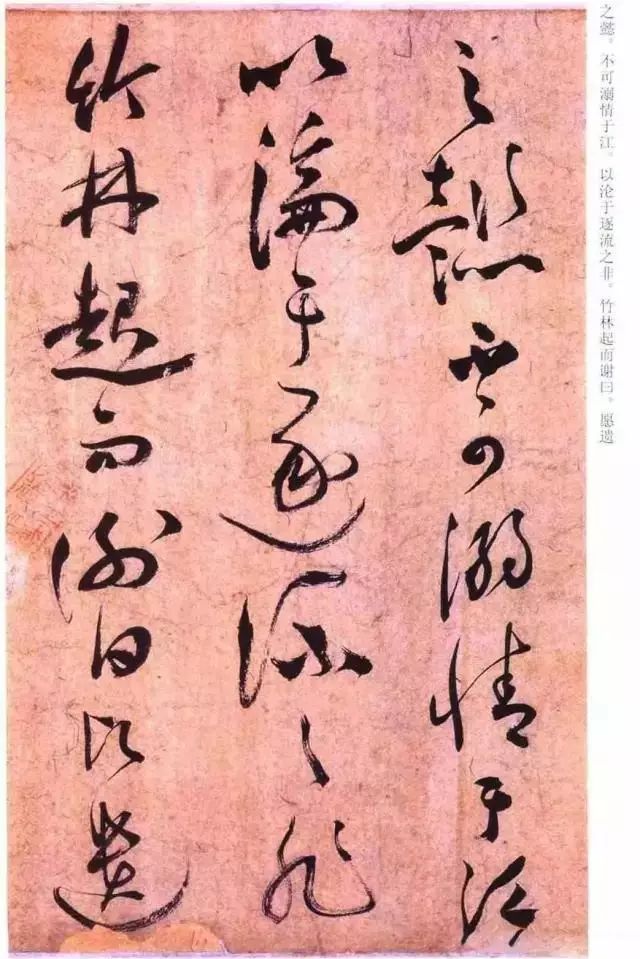 之懿。不可溺情于江。以沦于逐流之非。竹林起而谢曰。愿遗
之懿不可溺情于
以淪于逐流之非
竹林起而謝曰遺